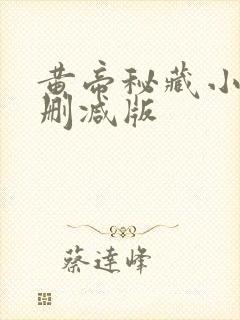 黄帝秘藏小
删减版
蔡達峰